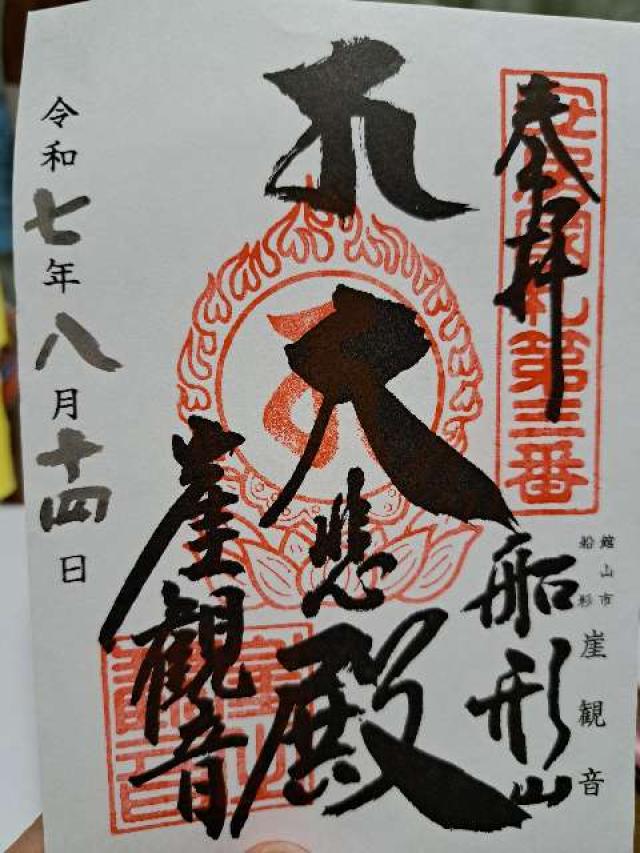 奉拝
安房国札第三番
館山市
船形
崖観音
船形山
大悲殿
崖観音
令和七年八月十四日